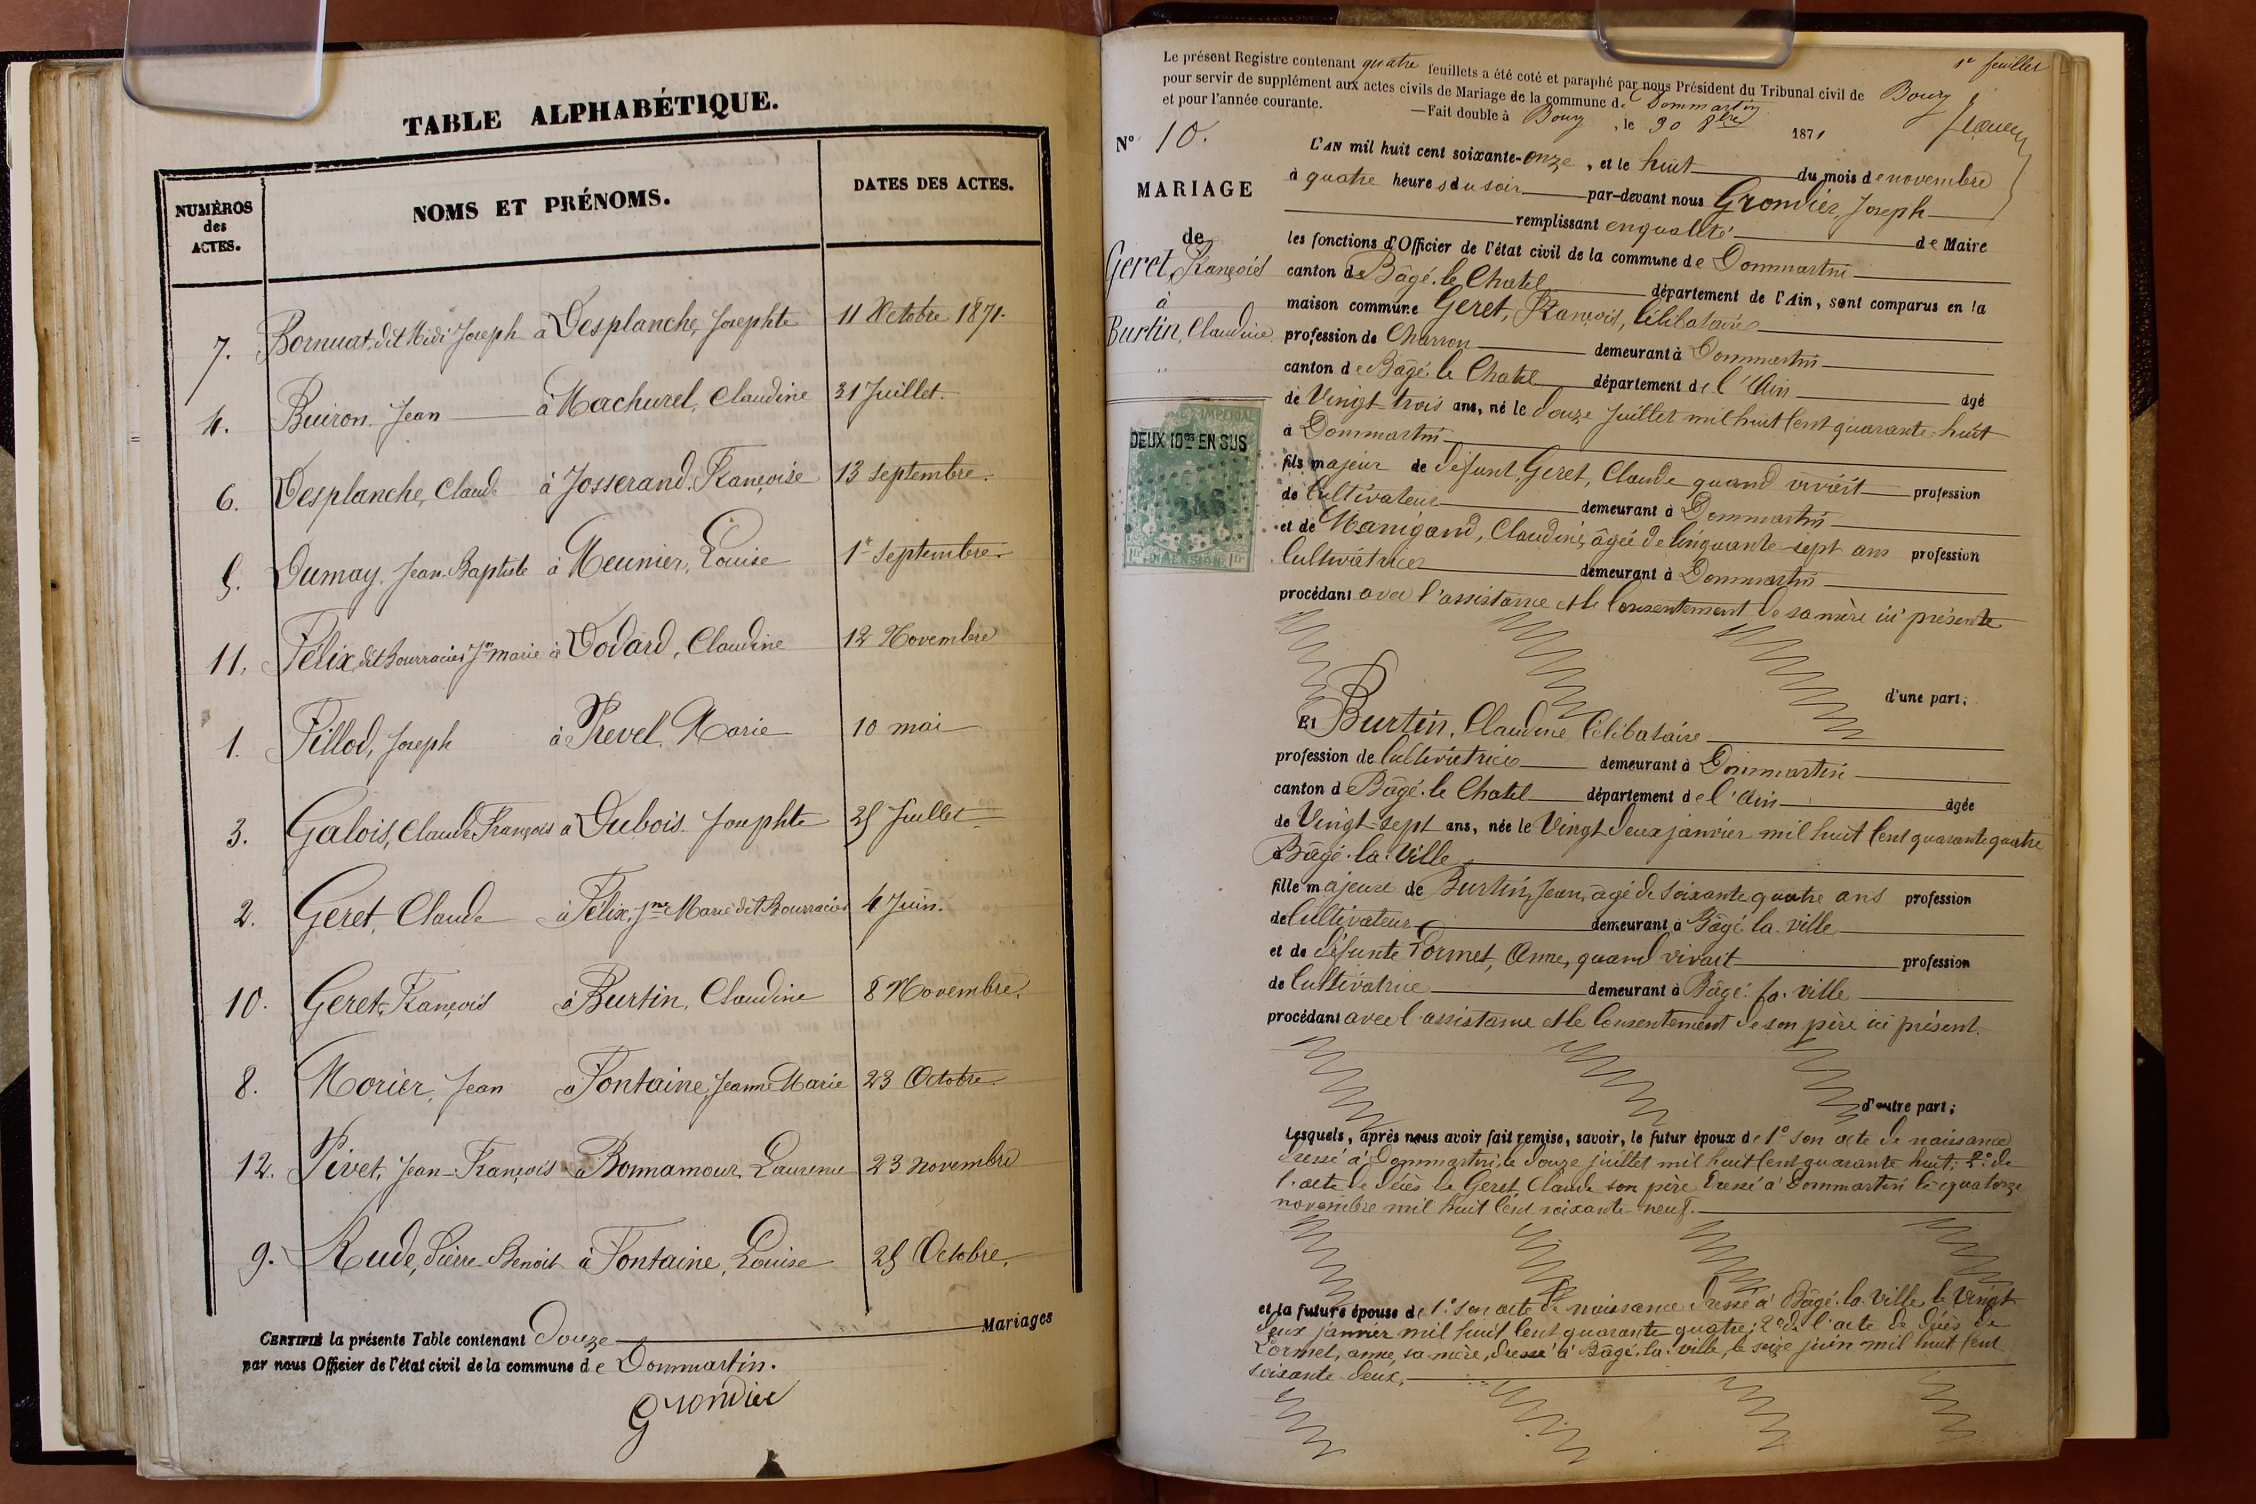 TABLE ALPHABÉTIQUE.
NUMÉROS des ACTES.
NOMS ET PRÉNOMS.
DATES DES ACTES.
7. Bornuat, dit Midi Joseph à Desplanche, Josephte 11 Octobre 1871.
4. Buiron. Jean à Machurel, Claudine 31 Juillet.
6. Desplanche, Claude à Josserand. Françoise 13 Septembre.
5. Dumay. Jean-Baptiste à Meunier, Louise 1er Septembre.
11. Félix, dit Bourracier Jn marie à Vodard, Claudine 12 Novembre
1. Fillod, Joseph à Prevel, Marie 10 mai
3. Galois, Claude François à Dubois. Josephte 25 Juillet
2. Geret, Claude à Félix, Jne Marie dit Bourracier 4 Juin.
10. Geret, François à Burtin, Claudine 8 Novembre.
8. Morier, Jean à Fontaine, Jeanne Marie 23 Octobre.
12. Pivet, Jean-François à Bonnamour, Laurence 23 novembre
9. Rude, Pierre-Benoit à Fontaine, Louise 25 Octobre.
CERTIFIÉ la présente Table contenant Douze Mariages
par nous Officier de l'état civil de la commune de Dommartin.
Grondier
1er feuillet
Le présent Registre contenant quatre feuillets a été coté et paraphé par nous Président du Tribunal civil de Bourg
pour servir de supplément aux actes civils de Mariage de la commune de Dommartin
et pour l'année courante. —Fait double à Bourg, le 30 8bre 1871
N° 10.
MARIAGE
de
Geret, François
à
Burtin, Claudine
DEUX 10es EN SUS
346
DIMENSION
L'AN mil huit cent soixante-onze, et le huit du mois de novembre
à quatre heures du soir par-devant nous Grondier, Joseph
remplissant en qualité de Maire
les fonctions d'Officier de l'état civil de la commune de Dommartin
canton de Bâgé-le-Chatel département de l'Ain, sont comparus en la
maison commune Geret, François, Célibataire
profession de Charron demeurant à Dommartin
canton de Bâgé-le Chatel département de l'Ain âgé
de Vingt trois ans, né le douze Juillet mil huit Cent quarante-huit
à Dommartin
fils majeur de défunt, Geret, Claude quand vivait profession
de Cultivateur demeurant à Dommartin
et de Manigand, Claudine, âgée de Cinquante-sept ans profession
Cultivatrice demeurant à Dommartin
procédant avec l'assistance et le Consentement de sa mère ici présente
d'une part;
Et Burtin, Claudine Célibataire
profession de Cultivatrice demeurant à Dommartin
canton de Bâgé-le Chatel département de l'Ain âgée
de Vingt-sept ans, née le Vingt deux janvier mil huit Cent quarante quatre
à Bâgé-la-Ville
fille majeure de Burtin, Jean, âgé de soixante quatre ans profession
de Cultivateur demeurant à Bâgé la ville
et de défunte Pormet, Anne, quand vivait profession
de Cultivatrice demeurant à Bâgé-la-ville
procédant avec l'assistance et le Consentement de son père ici présent.
d'autre part;
Lesquels, après nous avoir fait remise, savoir, le futur époux de 1° son acte de naissance
dressé à Dommartin, le douze juillet mil huit Cent quarante huit; 2° de
l'acte de décès de Geret, Claude son père dressé à Dommartin le quatorze
novembre mil huit Cent soixante-neuf.
et la future épouse de 1° son acte de naissance dressé à Bâgé-la-Ville, le Vingt
deux janvier mil huit Cent quarante quatre; 2° de l'acte de décès de
Pormet, anne, sa mère, dressé à Bâgé-la-ville, le seize juin mil huit Cent
soixante-deux.